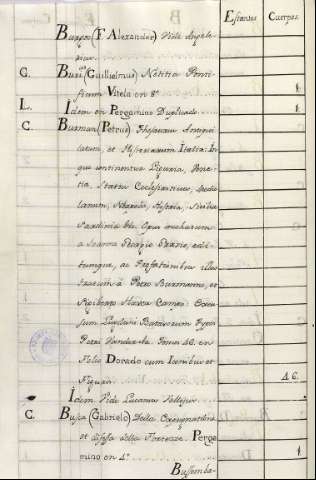 Estantes Cuerpos
Burgos (F. Alexander) Vide Angele-
rius.
C. Buri (Guillielmus) Notitia Ponti-
ficum Vitela en 8º 1
L. Idem en Pergamino Duplicado 1
C. Burman (Petrus) Thesaurus Antiqui-
tatum, et Historiarum Italiæ: In
quo continentur Liguria, Vene-
tia, Status Ecclesiasticus, Medio-
lanum, Neapolis, Histria, Sicilia
Sardinia &c. Opus inchoatum
a Joanne Georgio Grævio, edi-
tumque, ac Prefationibus illus-
tratum à Petro Burmanno, et
Sigiberto Haver Camp. Excu-
sum Lugduni Batavorum Typis
Petri Vander Aa. Tomi 46. en
Folio Dorado cum Iconibus et
Figuris 46.
Idem Vide Lucanus
C. Busca (Gabriele) Della Expugnatione
et difesa delle Fortezze. Perga-
mino en 4º 1
Bussemba-